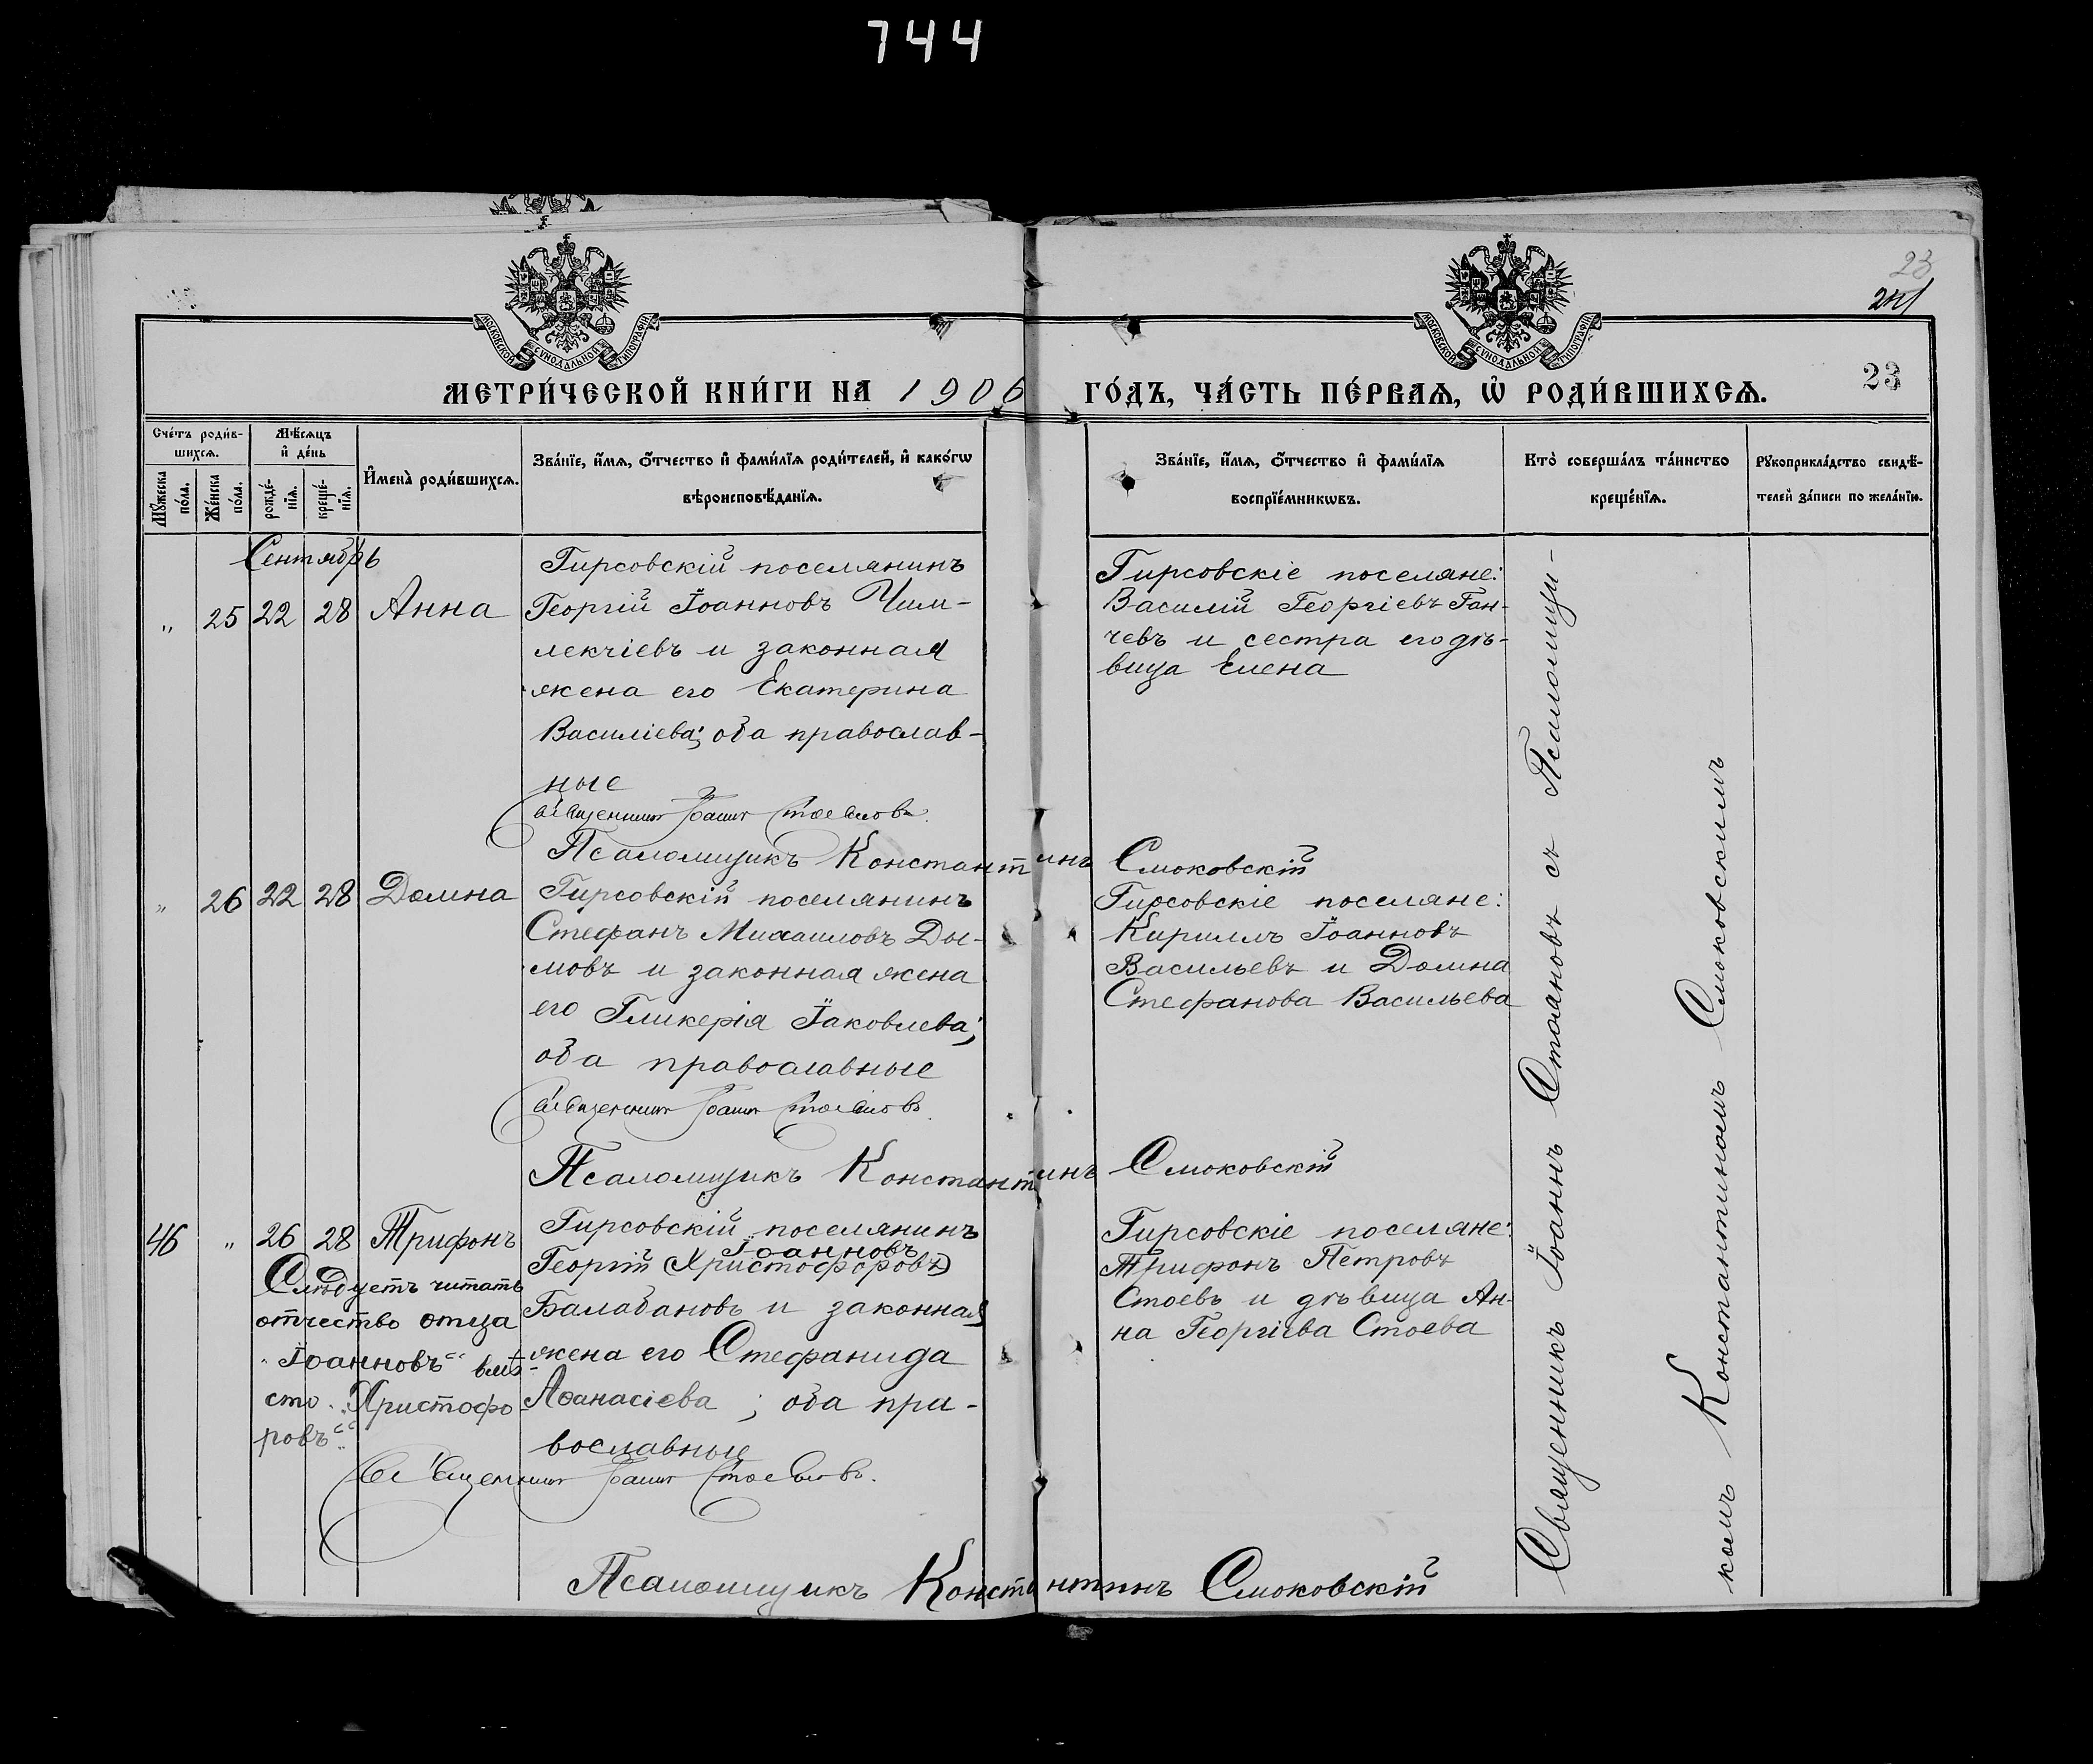 744
23
МОСКОВСКОЙ СУНОДАЛЬНОЙ ТИПОГРАФІИ
МОСКОВСКОЙ СУНОДАЛЬНОЙ ТИПОГРАФІИ
23
МЕТРИ́ЧЕСКОЙ КНИ́ГИ НА 1906 ГО́ДЪ, ЧА́СТЬ ПЕ́РВАѦ, Ѡ҆ РОДИ́ВШИХСѦ.
Сче́тъ роди́в-
шихсѧ.
Мꙋ́жеска по́ла.
Же́нска по́ла.
Мѣ́сѧцъ
и҆ де́нь
рожде́-
нїѧ.
креще́-
нїѧ.
И҆мена̀ роди́вшихсѧ.
Зва́нїе, и҆́мѧ, ѻ҆́тчество и҆ фами́лїѧ роди́телей, и҆ како́гѡ
вѣроисповѣ́данїѧ.
Зва́нїе, и҆́мѧ, ѻ҆́тчество и҆ фами́лїѧ
воспрїе́мникѡвъ.
Кто̀ соверша́лъ та́инство
креще́нїѧ.
Рꙋкоприкла́дство свидѣ́-
телей за́писи по жела́нїю.
Сентябрь
„ 25 22 28 Анна
Гирсовскій поселянинъ
Георгій Іоанновъ Чим-
лекчіевъ и законная
жена его Екатерина
Василіева; оба православ-
ные
Священникъ Іоаннъ Стояновъ.
Псаломщикъ Константинъ Смоковскій
Гирсовскіе поселяне:
Василій Георгіевъ Ган-
чевъ и сестра его дѣ-
вица Елена
„ 26 22 28 Домна
Гирсовскій поселянинъ
Стефанъ Михаиловъ Ды-
мовъ и законная жена
его Гликерія Іаковлева;
оба православные
Священникъ Іоаннъ Стояновъ.
Псаломщикъ Константинъ Смоковскій
Гирсовскіе поселяне:
Кириллъ Іоанновъ
Васильевъ и Домна
Стефанова Васильева
46 „ 26 28 Трифонъ
Слѣдуетъ читать
отчество отца
„Іоанновъ“ вмѣ-
сто „Христофо-
ровъ“
Гирсовскій поселянинъ
Іоанновъ
Георгій (Христофоровъ)
Балабановъ и законная
жена его Стефанида
Аѳанасіева; оба пра-
вославные
Священникъ Іоаннъ Стояновъ.
Псаломщикъ Константинъ Смоковскій
Гирсовскіе поселяне:
Трифонъ Петровъ
Стоевъ и дѣвица Ан-
на Георгіева Стоева
Священникъ Іоаннъ Стояновъ съ Псаломщи-
комъ Константиномъ Смоковскимъ